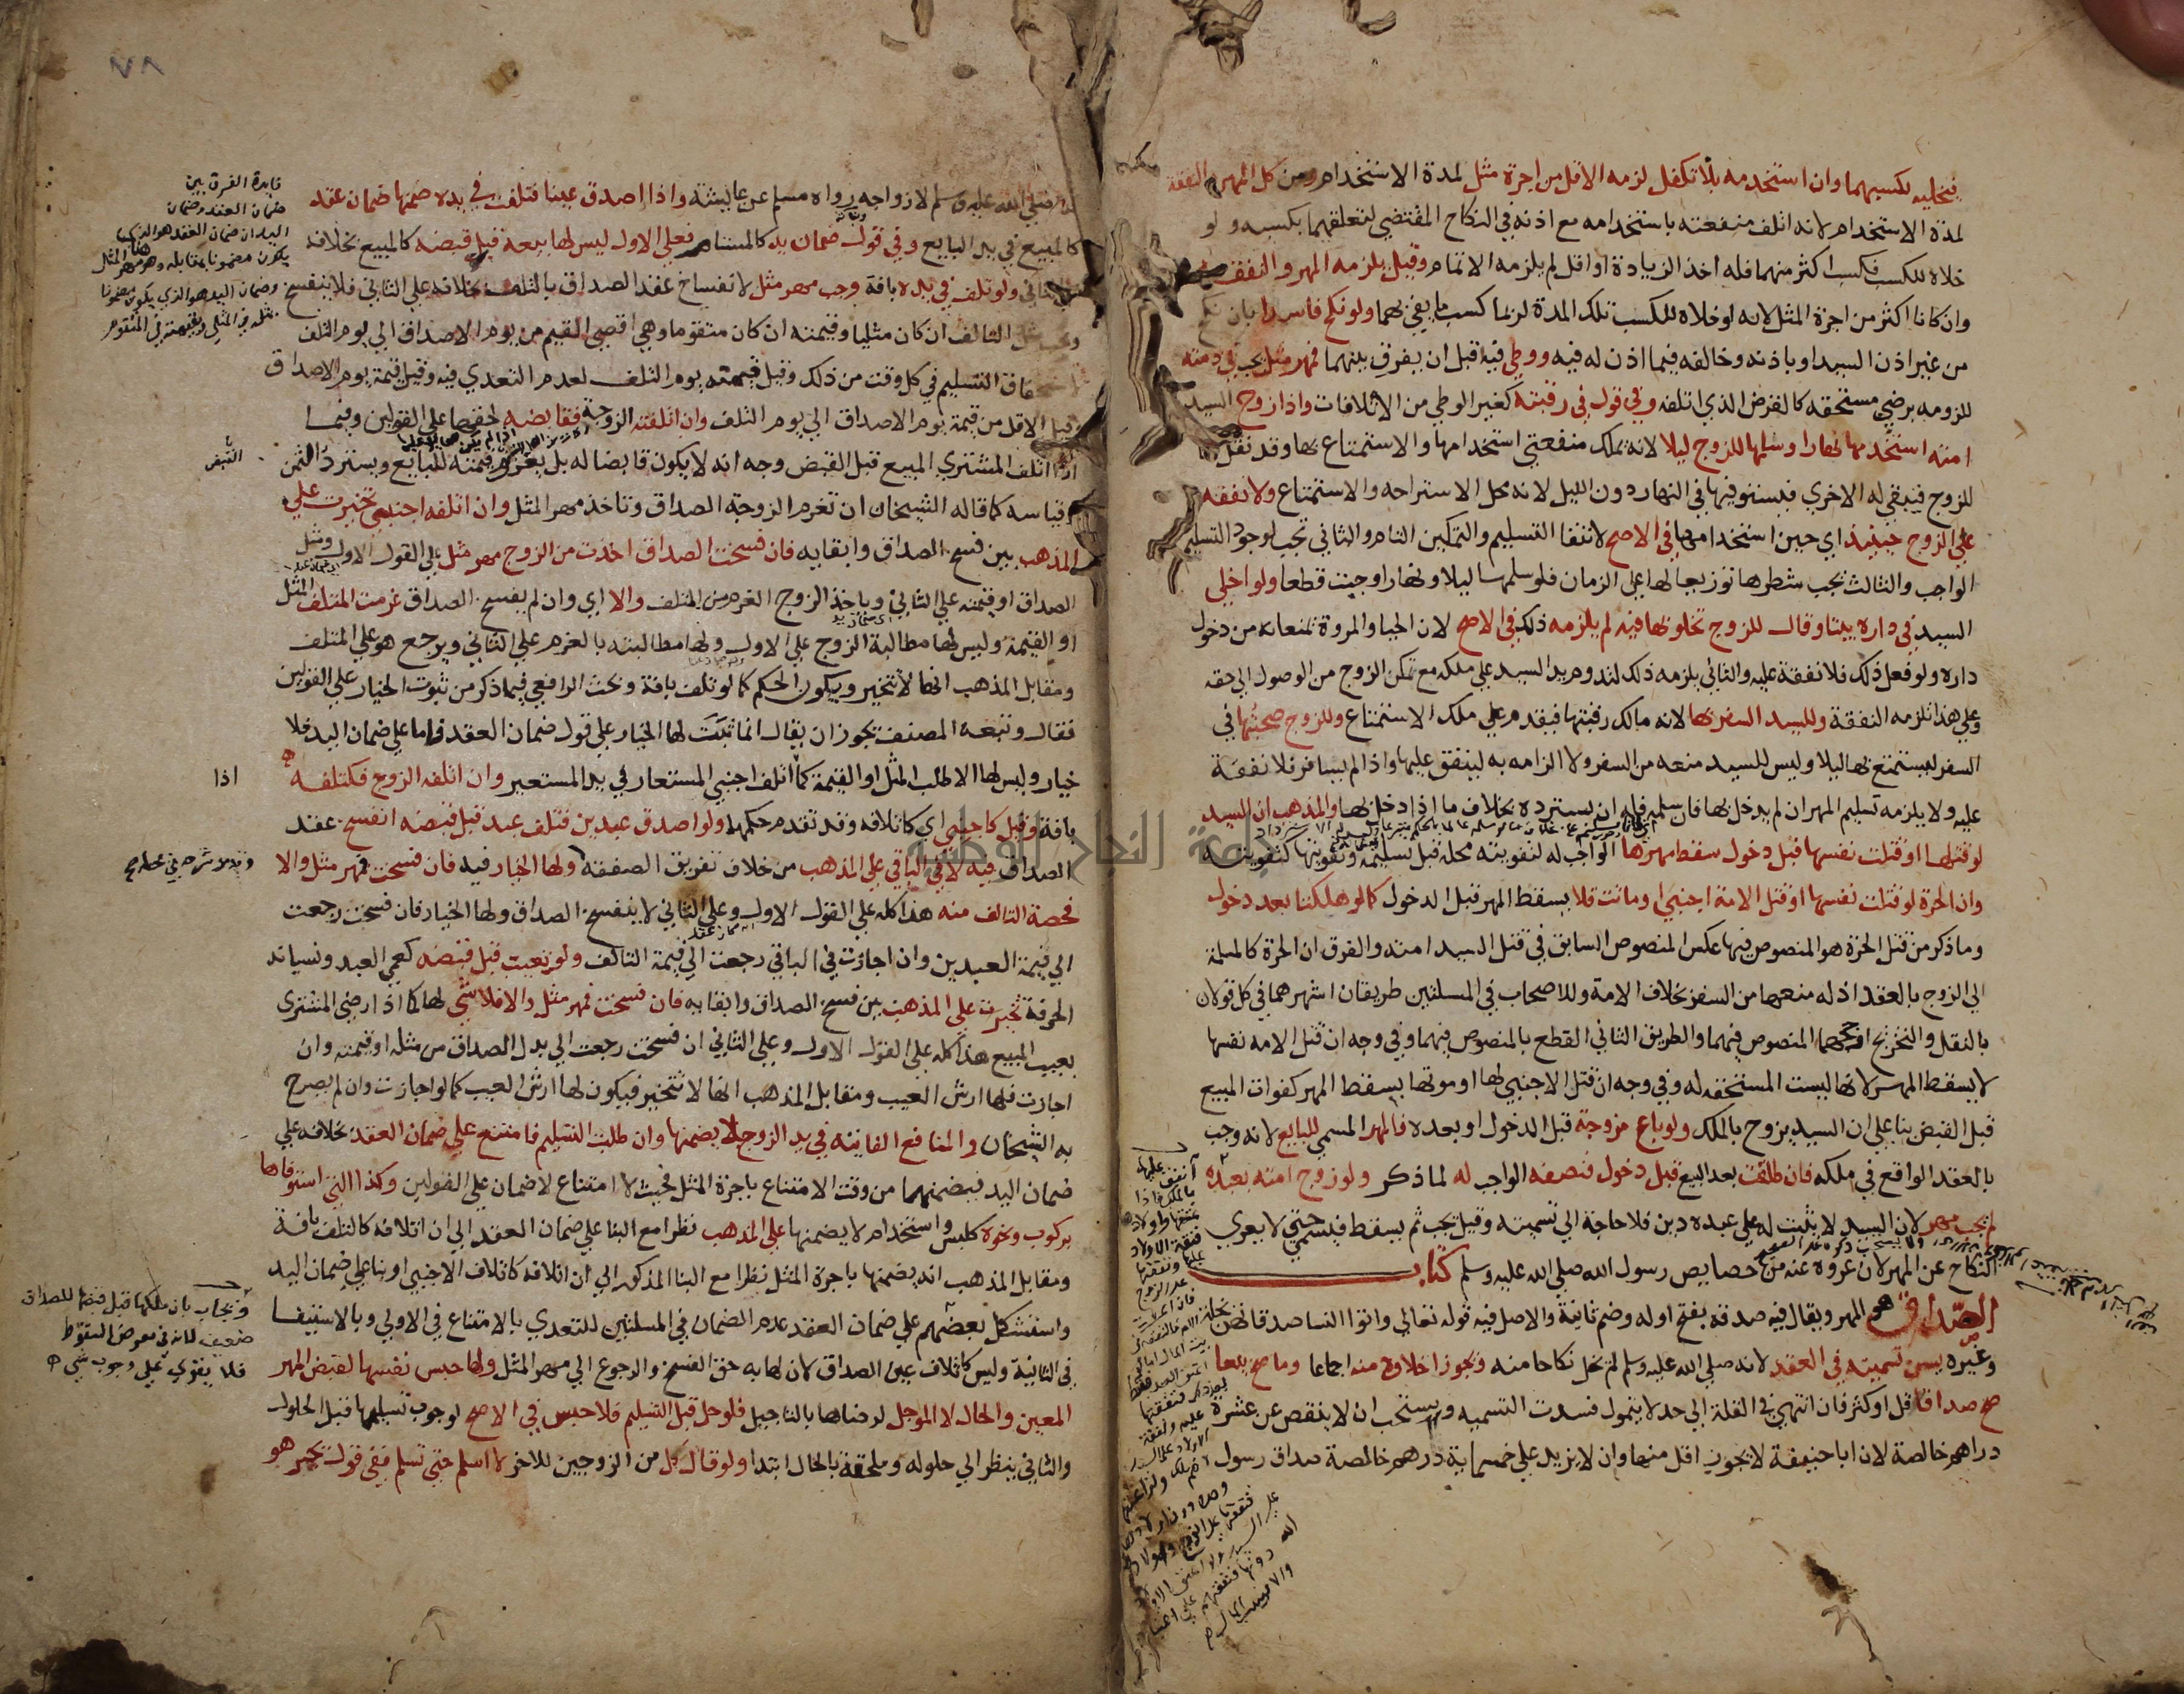 فيخليه لكسبهما وان استخدمه بلا تكفل لزمه الاقل من اجرة مثل لمدة الاستخدام ومن كل المهر والنفقة
لمدة الاستخدام لانه اتلف منفعته باستخدامه مع اذنه في النكاح المقتضي لتعلقهما بكسبه ولو
خلاه للكسب فكسب اكثر منهما فله اخذ الزيادة او اقل لم يلزمه الاتمام وقيل يلزمه المهر والنفقة
وان كانا اكثر من اجرة المثل لانه لو خلاه للكسب تلك المدة لربما كسب ما يفي بهما ولو نكح فاسدا بان نكح
من غير اذن السيد او باذنه وخالفه فيما اذن له فيه ووطي فيه قبل ان يفرق بينهما فمهر مثل يجب في ذمته
للزومه برضي مستحقه كالقرض الذي اتلفه وفي قول في رقبته كغير الوطي من الاتلافات واذا زوج السيد
امته استخدمها نهارا وسلمها للزوج ليلا لانه يملك منفعتي استخدامها والاستمتاع بها وقد نقل
للزوج فيبقي له الاخري فيستوفيها في النهار دون الليل لانه محل الاستراحه والاستمتاع ولا نفقة
علي الزوج حينيذ اي حين استخدامها في الاصح لانتفا التسليم والتمكين التام والثاني تجب لوجود التسليم
الواجب والثالث يجب شطرها توزيعا لها علي الزمان فلو سلمها ليلا ونهارا وجبت قطعا ولو اخلي
السيد في داره بيتا وقال للزوج تخلو بها فيه لم يلزمه ذلك في الاصح لان الحيا والمروة تمنعانه من دخول
داره ولو فعل ذلك فلا نفقة عليه والثاني يلزمه ذلك لتدوم يد السيد علي ملكه مع تمكن الزوج من الوصول الي حقه
وعلي هذا تلزمه النفقة وللسيد السفر بها لانه مالك رقبتها فيقدم علي ملك الاستمتاع وللزوج صحبتها في
السفر ليستمتع بها ليلا وليس للسيد منعه من السفر ولا الزامه به لينفق عليها واذا لم يسافر فلا نفقة
عليه ولا يلزمه تسليم المهر ان لم يدخل بها فان سلمه فله ان يسترده بخلاف ما اذا دخل بها والمذهب ان السيد
لو قتلها او قتلت نفسها قبل دخول سقط مهرها الواجب له لتفويته محله قبل تسليمه وتفويتها كتفويته
وان الحرة لو قتلت نفسها او قتل الامة اجنبي او ماتت فلا يسقط المهر قبل الدخول كما لو هلكتا بعد دخول
وما ذكر من قتل الحرة هو المنصوص فيها عكس المنصوص السابق في قتل السيد امته والفرق ان الحرة كالمسلمة
الي الزوج بالعقد اذ له منعها من السفر بخلاف الامة وللاصحاب في المسلتين طريقان اشهرهما في كل قولان
بالنقل والتخريج ارجحهما المنصوص فيهما والطريق الثاني القطع بالمنصوص فيهما وفي وجه ان قتل الامه نفسها
لا يسقط المهر لانها ليست المستحقه له وفي وجه ان قتل الاجنبي لها او موتها يسقط المهر كفوات المبيع
قبل القبض بنا علي ان السيد يزوج بالملك ولو باع مزوجة قبل الدخول او بعده فالمهر المسمي للبايع لانه وجب
بالعقد الواقع في ملكه فان طلقت بعد البيع قبل دخول فنصفه الواجب له لما ذكر ولو زوج امته بعبده
لم يجب مهر لان السيد لا يثبت له علي عبده دين فلا حاجة الي تسميته وقيل يجب ثم يسقط فيسمي حتي لا يعري
النكاح عن المهر لان عروه عنه من خصايص رسول الله صلي الله عليه وسلم كتاب
الصداق هو المهر ويقال فيه صدقة بفتح اوله وضم ثانية والاصل فيه قوله تعالي واتوا النسا صدقاتهن نحلة
وغيره يسن تسميته في العقد لانه صلي الله عليه وسلم لم يخل نكاحا منه ويجوز اخلاوه منه اجماعا وما صح بيعا
صح صداقا قل او كثر فان انتهي في القلة الي حد لا يتمول فسدت التسميه ويستحب ان لا ينقص عن عشرة
دراهم خالصة لان ابا حنيفة لا يجوز اقل منها وان لا يزيد علي خمسماية درهم خالصة صداق رسول
٧٨
الله صلي الله عليه وسلم لازواجه رواه مسلم عن عايشة واذا اصدق عينا فتلفت في يده ضمنها ضمان عقد
كالمبيع في يد البايع وفي قول ضمان يد كالمستام فعلي الاول ليس لها بيعه قبل قبضه كالمبيع بخلافه
علي الثاني ولو تلف في يده بافة وجب مهر مثل لانفساخ عقد الصداق بالتلف بخلافه علي الثاني فلا ينفسخ
ويجب مثل التالف ان كان مثليا وقيمته ان كان متقوما وهي اقصي القيم من يوم الاصداق الي يوم التلف
لاستحقاق التسليم في كل وقت من ذلك وقيل قيمته يوم التلف لعدم التعدي فيه وقيل قيمة يوم الاصداق
وقيل الاقل من قيمة يوم الاصداق الي يوم التلف وان اتلفته الزوجة فقابضه لحقها علي القولين وفيما
اذا اتلف المشتري المبيع قبل القبض وجه انه لا يكون قابضا له بل يغرم قيمته للبايع ويسترد الثمن
وقياسه كما قاله الشيخان ان تغرم الزوجة الصداق وتاخذ مهر المثل وان اتلفه اجنبي تخيرت علي
المذهب بين فسخ الصداق وابقايه فان فسخت الصداق اخذت من الزوج مهر مثل علي القول الاول ومثل
الصداق او قيمته علي الثاني وياخذ الزوج الغرم من المتلف والا اي وان لم يفسخ الصداق غرمت المتلف المثل
او القيمة وليس لها مطالبة الزوج علي الاول ولها مطالبته بالغرم علي الثاني ويرجع هو علي المتلف
ومقابل المذهب انها لا تتخير ويكون الحكم كما لو تلف بافة وبحث الرافعي فيما ذكر من ثبوت الخيار علي القولين
فقال وتبعه المصنف يجوز ان يقال انما ثبتت لها الخيار علي قول ضمان العقد فاما علي ضمان اليد فلا
خيار وليس لها الا طلب المثل او القيمة كما اتلف اجنبي المستعار في يد المستعير وان اتلفه الزوج فكتلفه
بافة وقيل كاجنبي اي كاتلافه وقد تقدم حكمها ولو اصدق عبدين فتلف عبد قبل قبضه انفسخ عقد
الصداق فيه لا في الباقي علي المذهب من خلاف تفريق الصفقة ولها الخيار فيه فان فسخت فمهر مثل والا
فحصة التالف منه هذا كله علي القول الاول وعلي الثاني لا ينفسخ الصداق ولها الخيار فان فسخت رجعت
الي قيمة العبدين وان اجازت في الباقي رجعت الي قيمة التالف ولو تعيب قبل قبضه كعمي العبد ونسيانه
الحرفة تخيرت علي المذهب بين فسخ الصداق وابقايه فان فسخت فمهر مثل والا فلا شي لها كما اذا رضي المشتري
بعيب المبيع هذا كله علي القول الاول وعلي الثاني ان فسخت رجعت الي بدل الصداق من مثله او قيمته وان
اجازت فلها ارش العيب ومقابل المذهب انها لا تتخير فيكون لها ارش العيب كما لو اجازت وان لم يصرح
به الشيخان والمنافع الفايتة في يد الزوج لا يضمنها وان طلبت التسليم فامتنع علي ضمان العقد بخلافه علي
ضمان اليد فيضمنهما من وقت الامتناع باجرة المثل فحيث لا امتناع لا ضمان علي القولين وكذا التي استوفاها
بركوب ونحوه كلبس واستخدام لا يضمنها علي المذهب نظرا مع البنا علي ضمان العقد الي ان اتلافه كالتلف بافة
ومقابل المذهب انه يضمنها باجرة المثل نظرا مع البنا المذكور الي ان اتلافه كاتلاف الاجنبي او بنا علي ضمان اليد
واستشكل بعضهم علي ضمان العقد عدم الضمان في المسلتين للتعدي بالامتناع في الاولي وبالاستيفا
في الثانية وليس كاتلاف عين الصداق لان لها به حق الفسخ والرجوع الي مهر المثل ولها حبس نفسها لقبض المهر
المعين والحال لا الموجل لرضاها بالتاجيل فلو حل قبل التسليم فلا حبس في الاصح لوجوب تسليمها قبل الحلول
والثاني ينظر الي حلوله ويلحقه بالحال ابتدا ولو قال كل من الزوجين للاخر لا اسلم حتي تسلم ففي قول يجبر هو
فايدة الفرق بين
ضمان العقد وضمان
اليد ان ضمان العقد هو الذي
يكون مضمونا بمقابله وهو هنا مهر المثل
وضمان اليد هو الذي يكون مضمونا
بمثله في المثلي وبقيمته في المتقوم
اذا
ويجاب بان ملكها قبل قبضها للصداق
ضعيف لانه في معرض السقوط
فلا يقوي علي وجوب شي